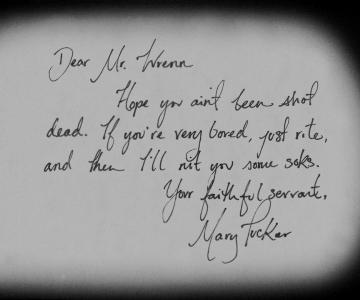 Dear Mr. Wrenn
Hope you ain't been shot
dead. If you're very bored, just rite,
and then I'll nit you some soks.
Your faithful servant,
Mary Tucker